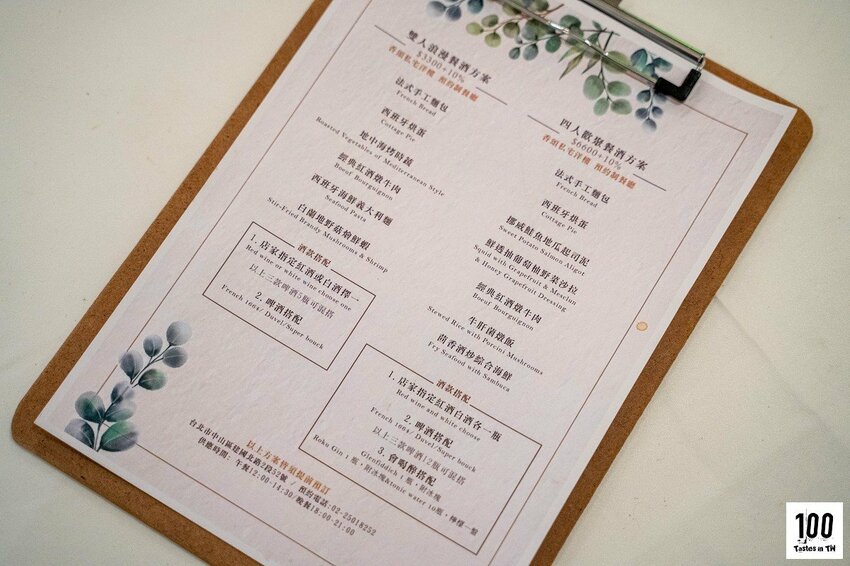 雙人浪漫餐酒方案
$3300+10%
香頌私宅洋樓 預約制餐廳
法式手工麵包
French Bread
西班牙烘蛋
Cottage Pie
地中海烤時蔬
Roasted Vegetables of Mediterranean Style
經典紅酒燉牛肉
Boeuf Bourguignon
西班牙海鮮義大利麵
Seafood Pasta
白蘭地野菇燴鮮蝦
Stir-Fried Brandy Mushrooms & Shrimp
酒款搭配
1. 店家指定紅酒或白酒擇一
Red wine or white wine choose one
以上三款啤酒5瓶可混搭
2. 啤酒搭配
French 1664/ Duvel/Super bouck
四人歡聚餐酒方案
$6600+10%
香頌私宅洋樓 預約制餐廳
法式手工麵包
French Bread
西班牙烘蛋
Cottage Pie
挪威鮭魚地瓜起司泥
Sweet Potato Salmon Aligot
鮮透抽葡萄柚野菜沙拉
Squid with Grapefruit & Mesclun
& Honey Grapefruit Dressing
經典紅酒燉牛肉
Boeuf Bourguignon
牛肝菌燉飯
Stewed Rice with Porcini Mushrooms
茴香酒炒綜合海鮮
Fry Seafood with Sambuca
酒款搭配
1. 店家指定紅酒白酒各一瓶
Red wine and white choose
2. 啤酒搭配
French 1664/ Duvel/Super bouck
以上三款啤酒12瓶可混搭
3. 會喝醉搭配
Glenfiddich 1瓶，附冰塊
Roku Gin 1瓶，附冰塊&tonic water 10瓶，檸檬一盤
以上方案皆須提前預訂
台北市中山區建國北路2段52號 / 預約電話:02-25018252
供應時間: 午餐12:00-14:30/晚餐18:00-21:00
100
Tastes in TW